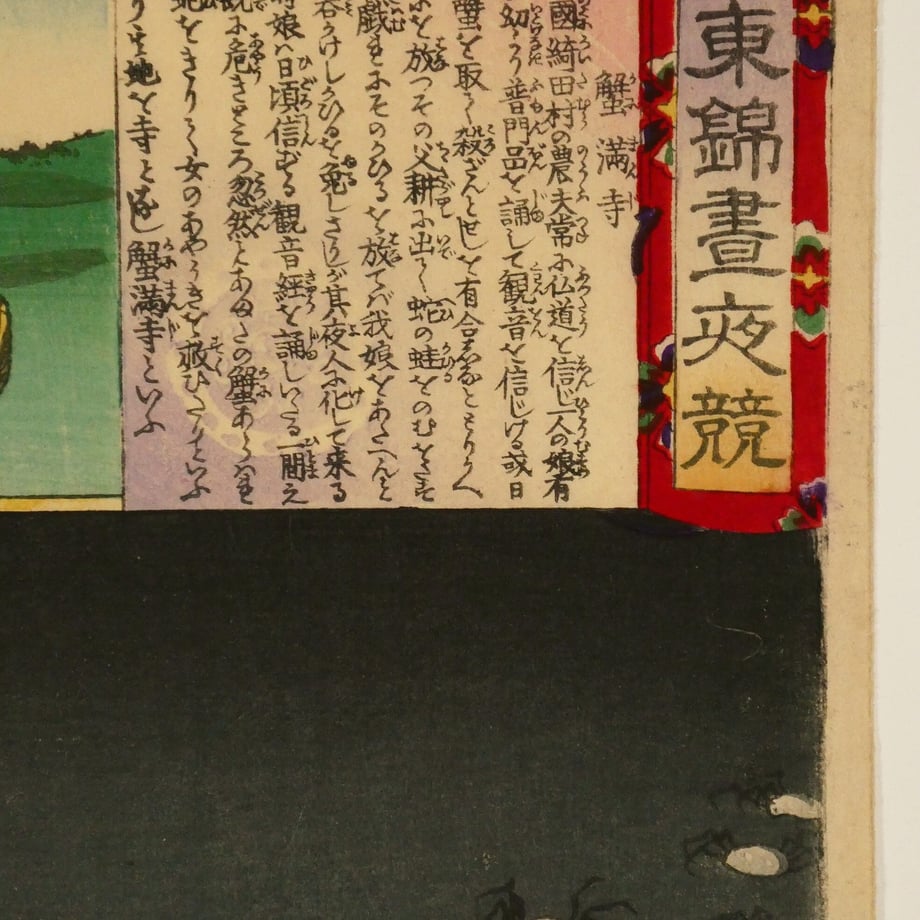 東錦晝夜競
蟹満寺
國綺田村の農夫常に仏道を信じ一人の娘有
幼より普門品を誦して観音を信じける或日
蟹を取て殺ざんとせしを有合
を放つその父耕に出て蛇の蛙をのむを
戯にそのかひるを放てバ我娘をあたへんと
呑かけしかひるを免しさりしが其夜人に化して来る
娘ハ日頃信ずる観音経を誦しいたる一間え
既に危きところ忽然とあまたの蟹あらはれ
蛇をきりて女のあやうきを救ひたりといふ
地を寺となし蟹満寺といふ